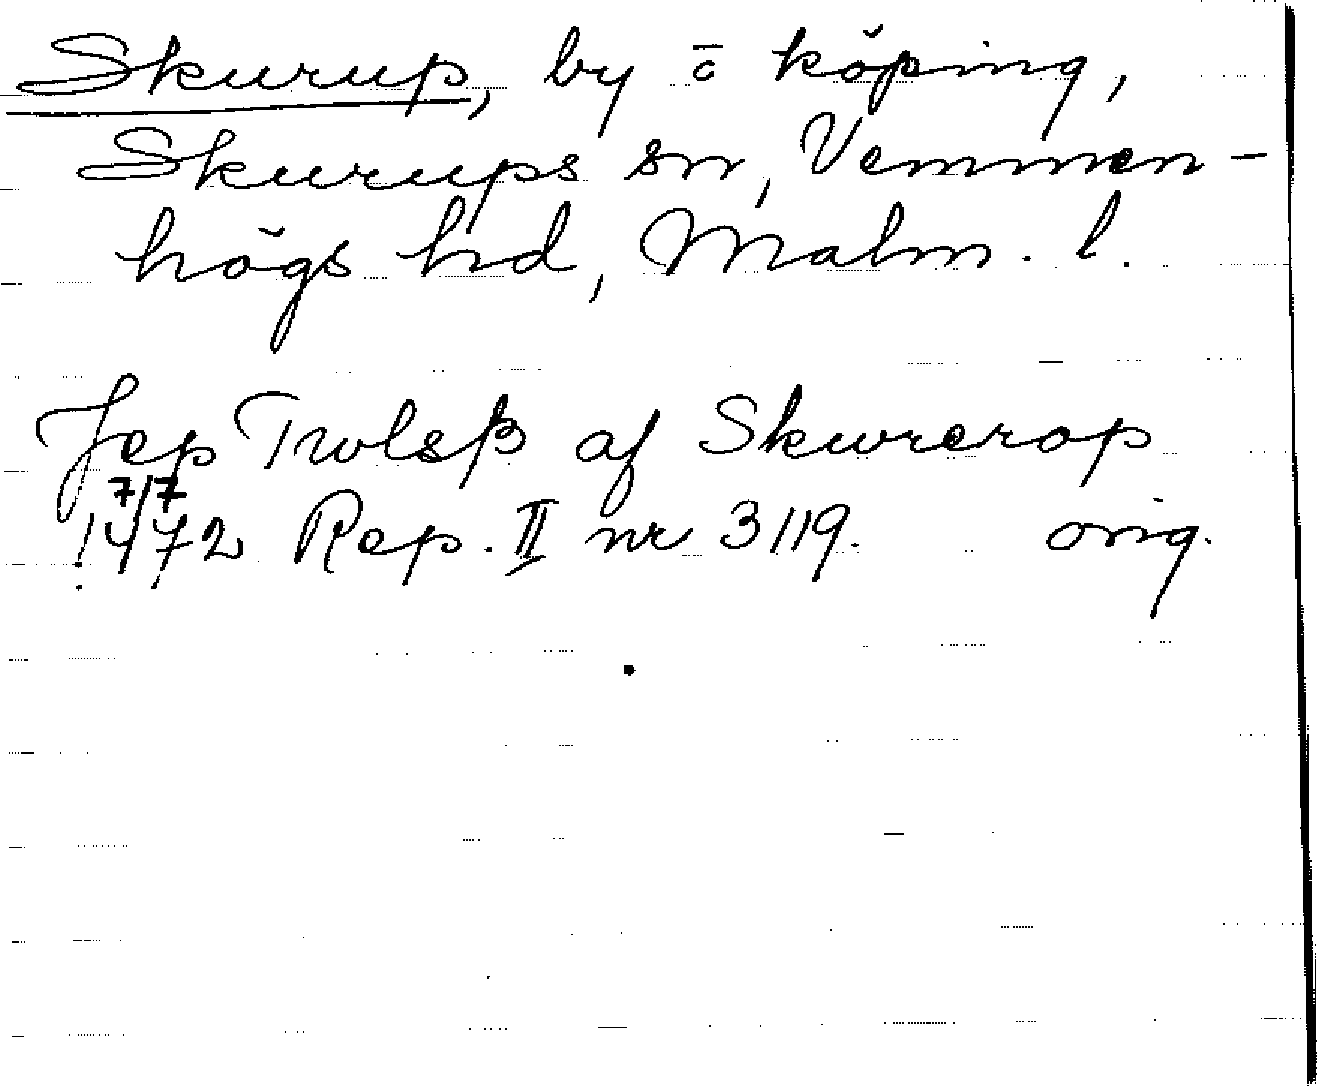 Skurup, by o köping,
Skurups sn, Vemmen-
högs hd, Malm. l.
Jep Twlsß af Skwrerop
7/7
1472 Rep. II nr 3119. orig.